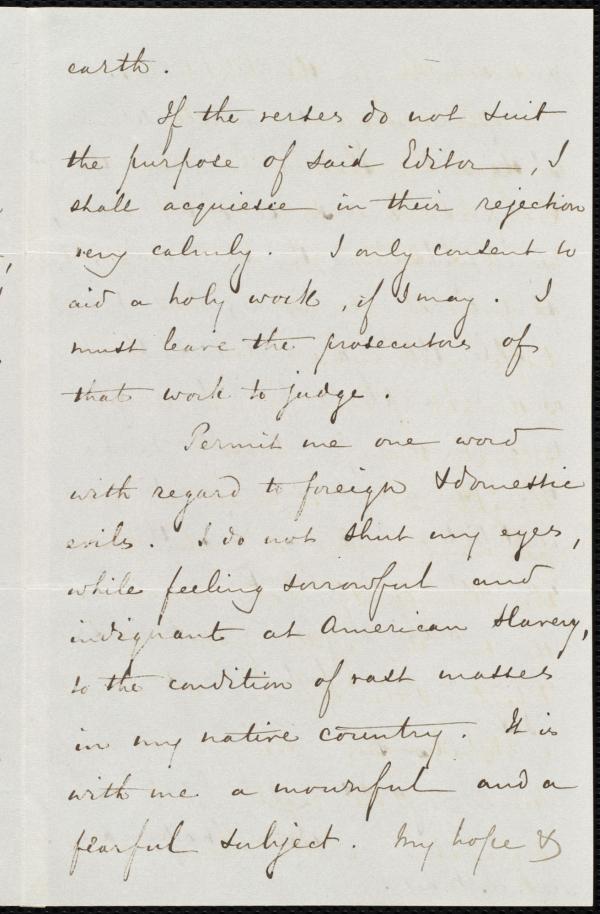 earth.
If the verses do not suit
the purpose of said Editor—, I
shall acquiesce in their rejection
very calmly. I only consent to
aid a holy work, if I may. I
must leave the prosecutors of
that work to judge.
Permit me one word
with regard to foreign & domestic
evils. I do not shut my eyes,
while feeling sorrowful and
indignant at American Slavery,
to the condition of vast masses
in my native country. It is
with me a mournful and a
fearful subject. My hope &